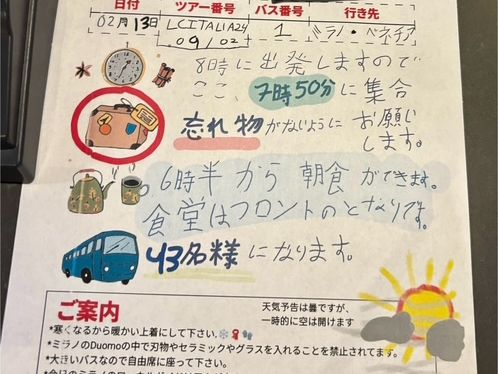 日付 ツアー番号 バス番号 行き先
02月13日 LCITALIA24 0９/02 1 ミラノ・ベネチア
8時に出発しますので
ここ、7時50分に集合
忘れ物がないように お願いします。
6時半から 朝食ができます。
食堂はフロントのとなりです。
43名様になります。
ご案内
天気予告は曇ですが、
一時的に空は開けます
*寒くなるから暖かい上着にして下さい。❄️🧣🧤
*ミラノのDuomoの中で刃物やセラミックやグラスを入れることを禁止されてます。
*大きいバスなので自由席に座って下さい。